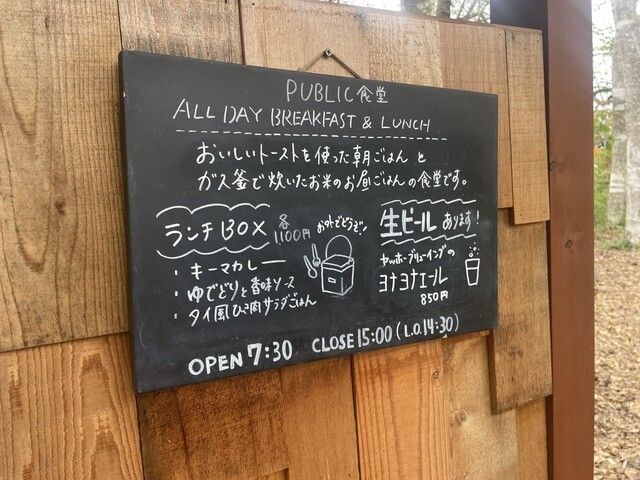 PUBLIC食堂
ALL DAY BREAKFAST & LUNCH
おいしいトーストを使った朝ごはん と
ガス釜で炊いたお米のお昼ごはんの食堂です。
ランチBOX 各1100円 お外でどうぞ!
・キーマカレー
・ゆでどりと香味ソース
・タイ風ひき肉サラダごはん
生ビール あります!
ヤッホーブルーイングの
ヨナヨナエール
850円
OPEN 7:30 CLOSE 15:00 (L.O.14:30)